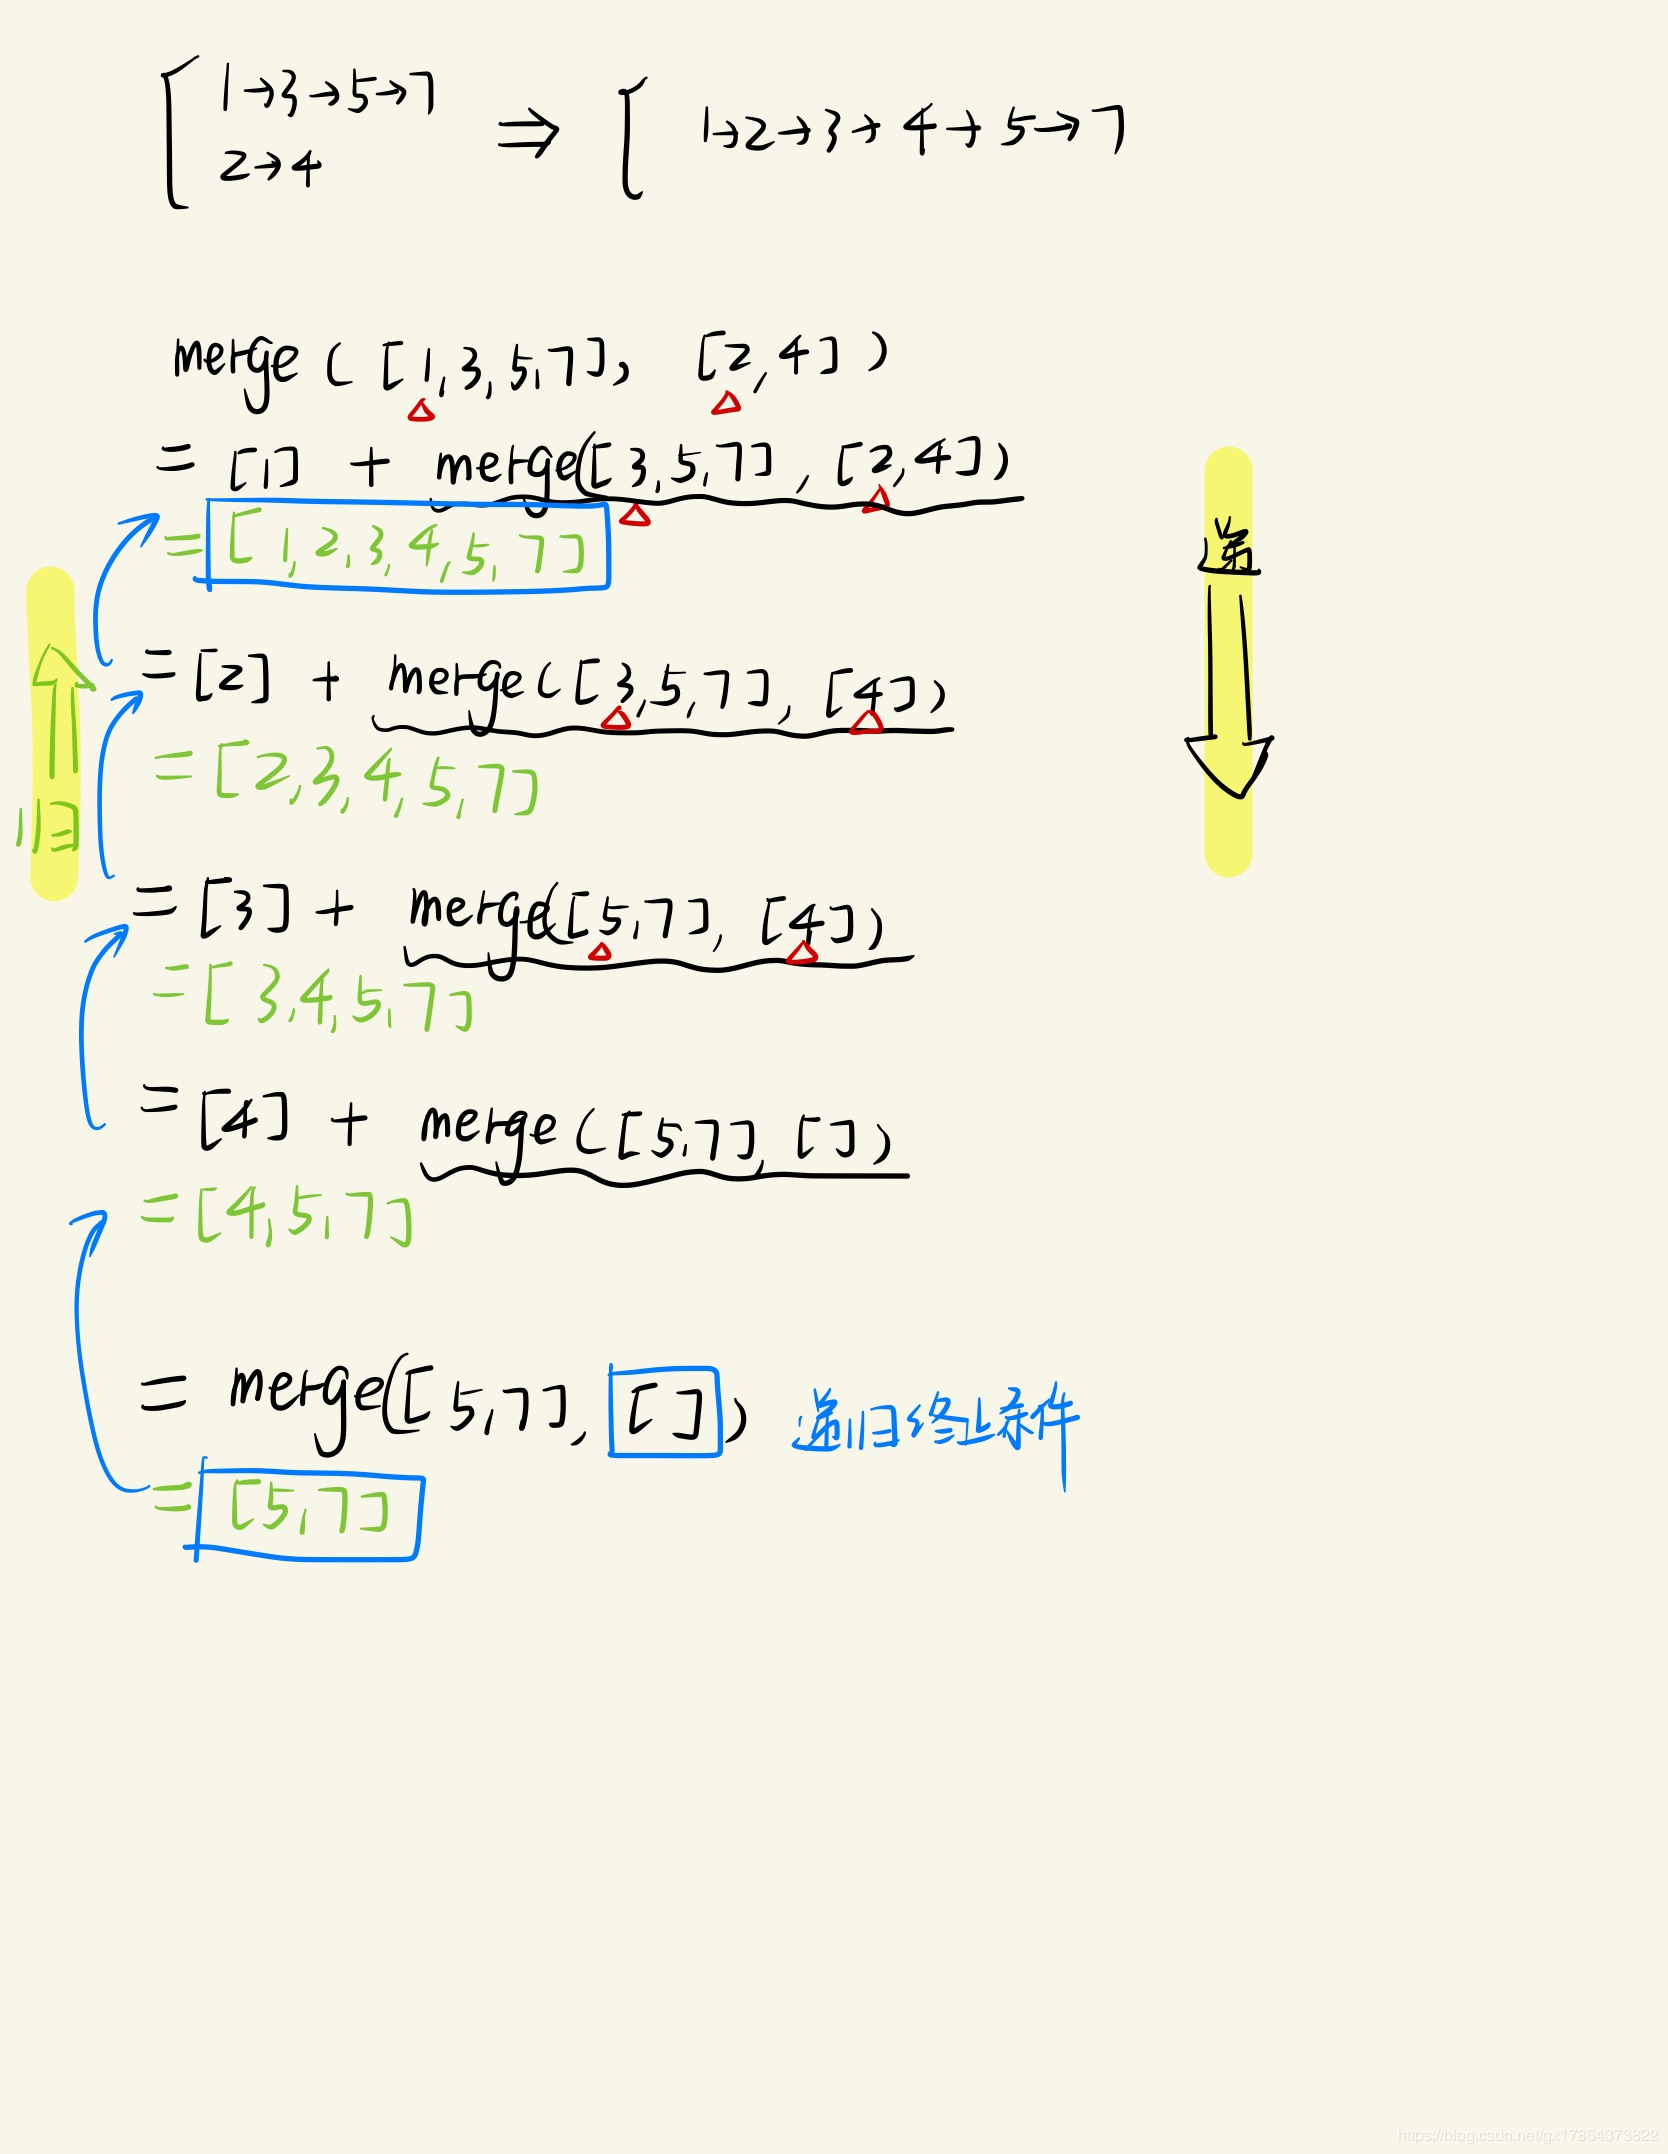 1→3→5→7
2→4
⇒
1→2→3→4→5→7
merge ( [1,3,5,7], [2,4] )
= [1] + merge([3,5,7], [2,4])
= [1,2,3,4,5,7]
递
= [2] + merge([3,5,7], [4])
= [2,3,4,5,7]
归
= [3] + merge([5,7], [4])
= [3,4,5,7]
= [4] + merge([5,7], [])
= [4,5,7]
= merge([5,7], []) 递归终止条件
= [5,7]
https://blog.csdn.net/gx17864373822